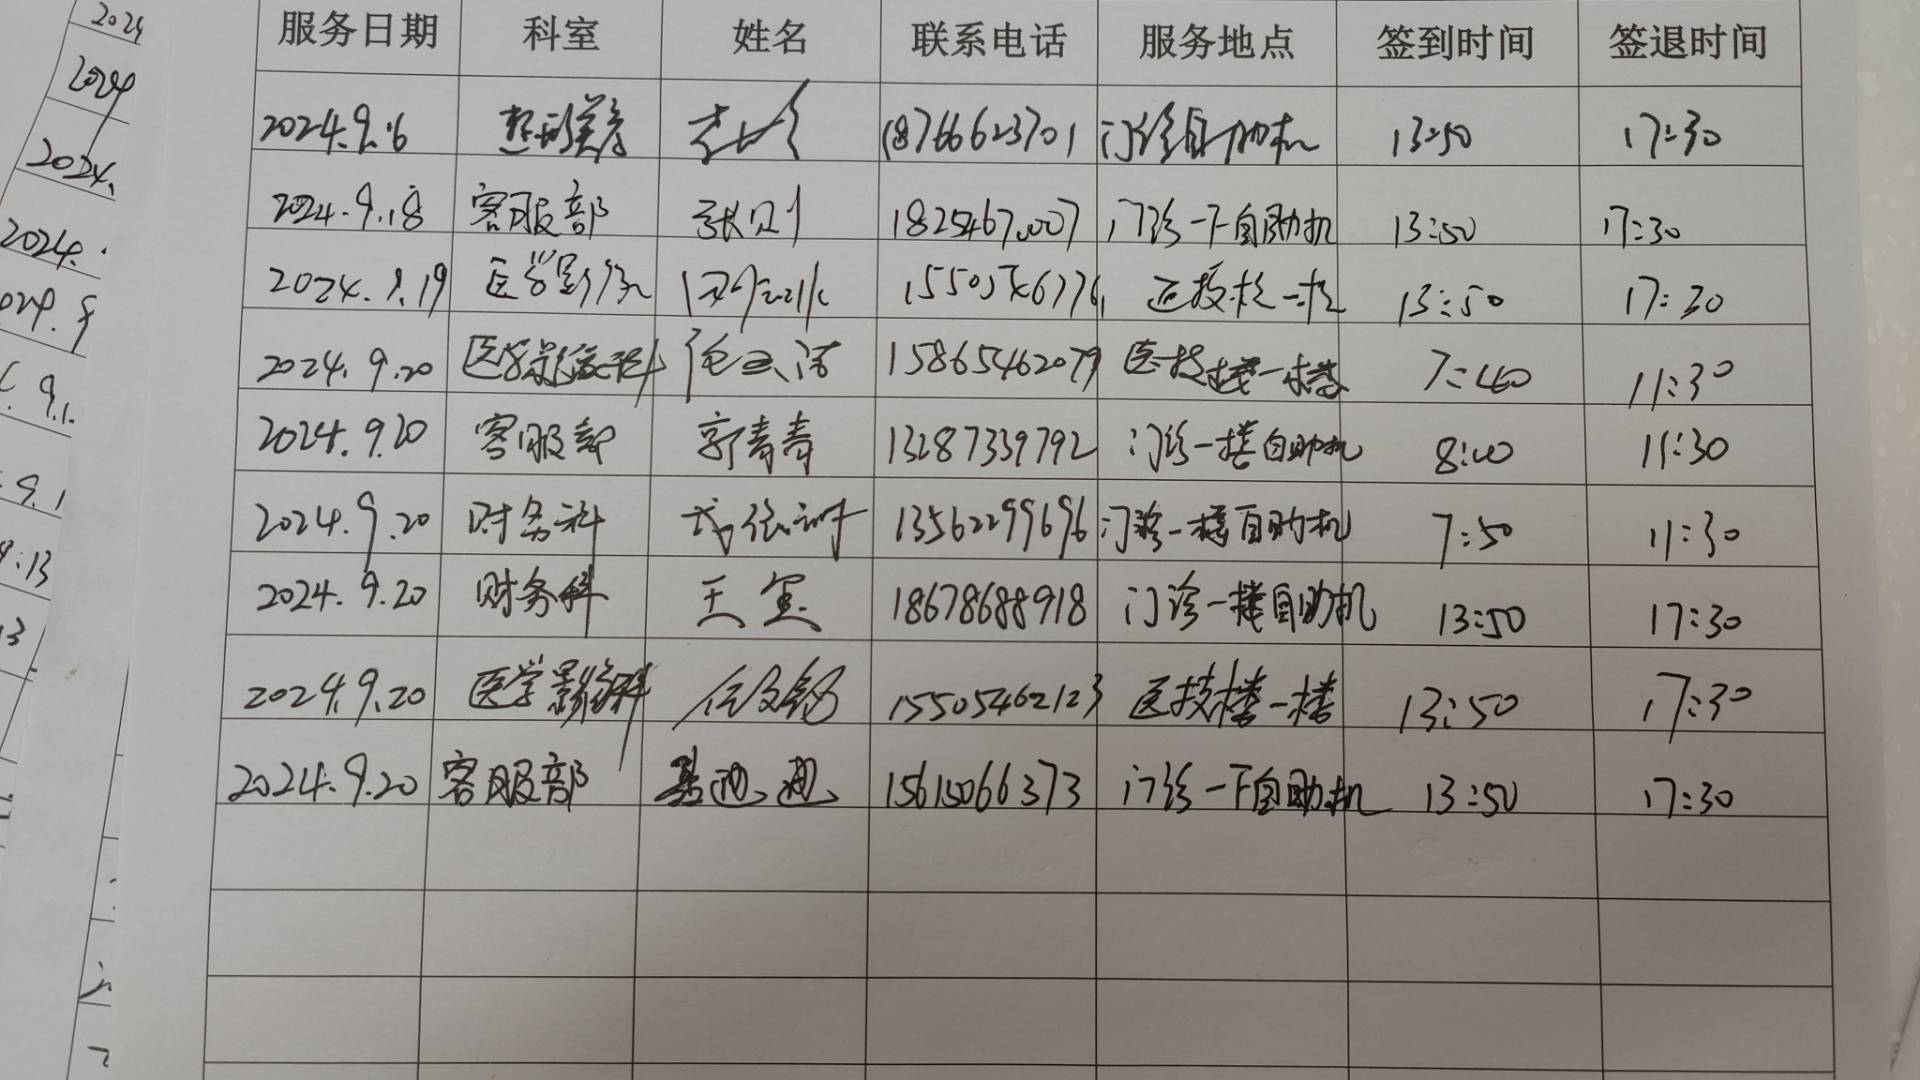 服务日期 科室 姓名 联系电话 服务地点 签到时间 签退时间
2024.9.6 整形美容 18766623701 门诊自助机 13:50 17:30
2024.9.18 客服部 张则 门诊一下自助机 13:50 17:30
2024.9.19 医学影像 医技楼一楼 13:50 17:30
2024.9.20 医学影像科 15865462079 医技楼一楼 7:40 11:30
2024.9.20 客服部 郭青青 13287339792 门诊一楼自助机 8:00 11:30
2024.9.20 财务科 13562299696 门诊一楼自助机 7:50 11:30
2024.9.20 财务科 王 18678688918 门诊一楼自助机 13:50 17:30
2024.9.20 医学影像科 15505462123 医技楼一楼 13:50 17:30
2024.9.20 客服部 15615066373 门诊一下自助机 13:50 17:30